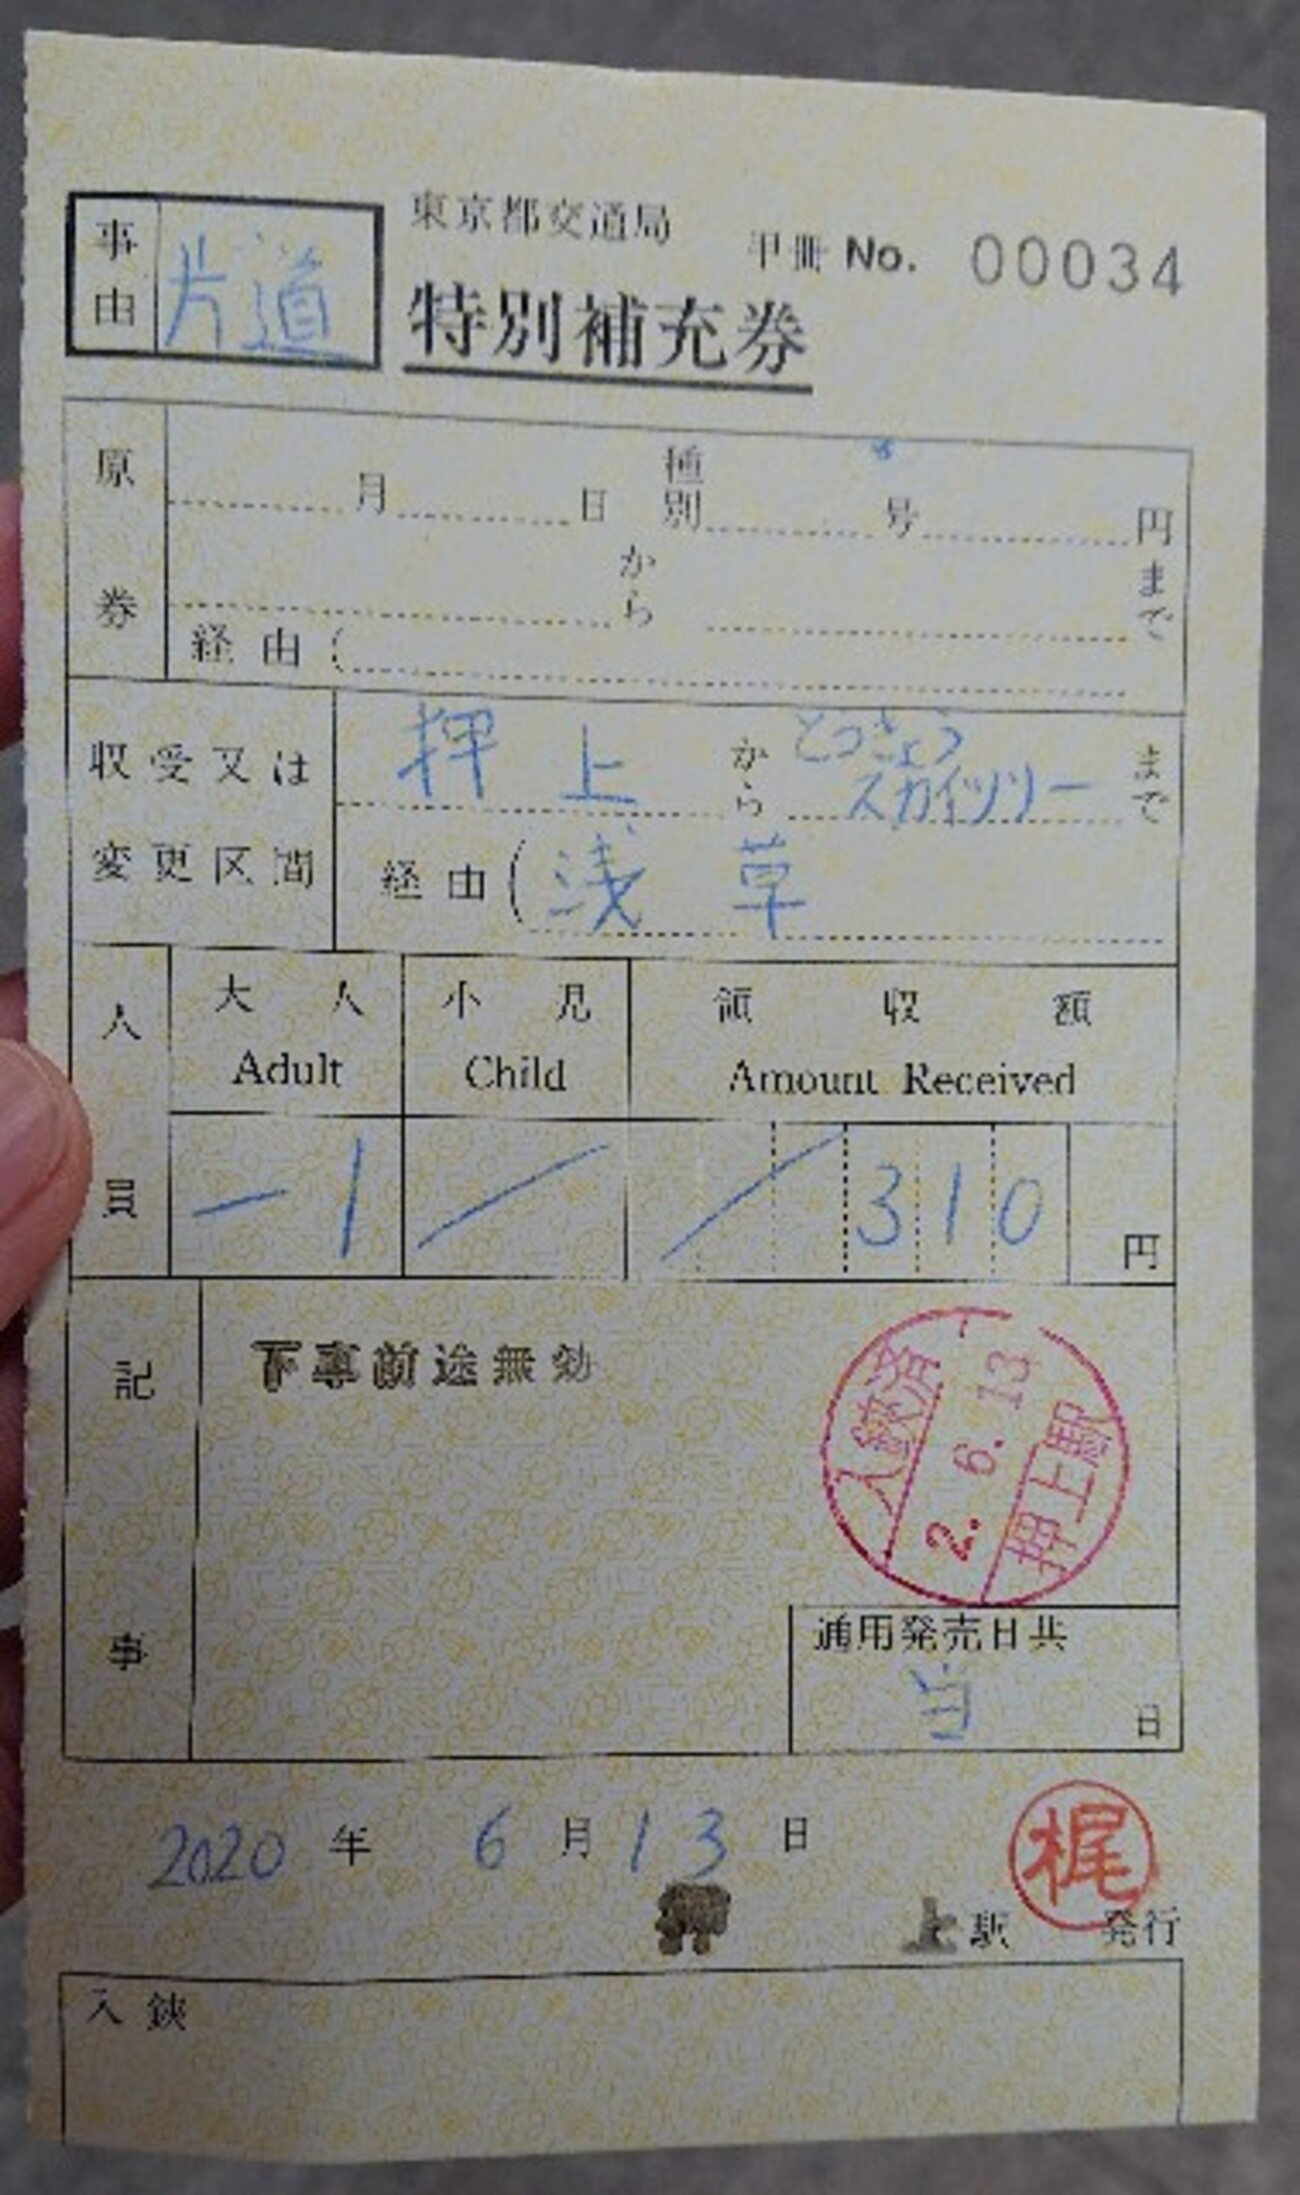 事由 片道
東京都交通局 甲冊 No. 00034
特別補充券
原券
月 日 種別 号 円
から まで
経由(
収受又は変更区間
押上 から とうきょうスカイツリー まで
経由(浅草
人員
大人 小児 領収額
Adult Child Amount Received
一1 / / 310 円
記事
下車前途無効
入鋏済
2.6.13
押上駅
通用発売日共
当日
2020年 6月13日
梶
押上駅 発行
入鋏